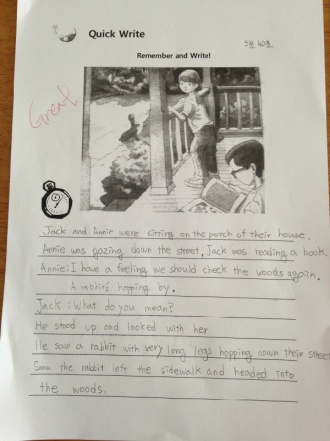 Quick Write
5분 40초
Remember and Write!
Great
Jack and Annie were sitting on the porch of their house.
Annie was gazing down the street. Jack was reading a book.
Annie: I have a feeling we should check the woods again.
A rabbit's hopping by.
Jack: What do you mean?
He stood up and looked with her
He saw a rabbit with very long legs hopping down their street
Soon the rabbit left the sidewalk and headed into
the woods.